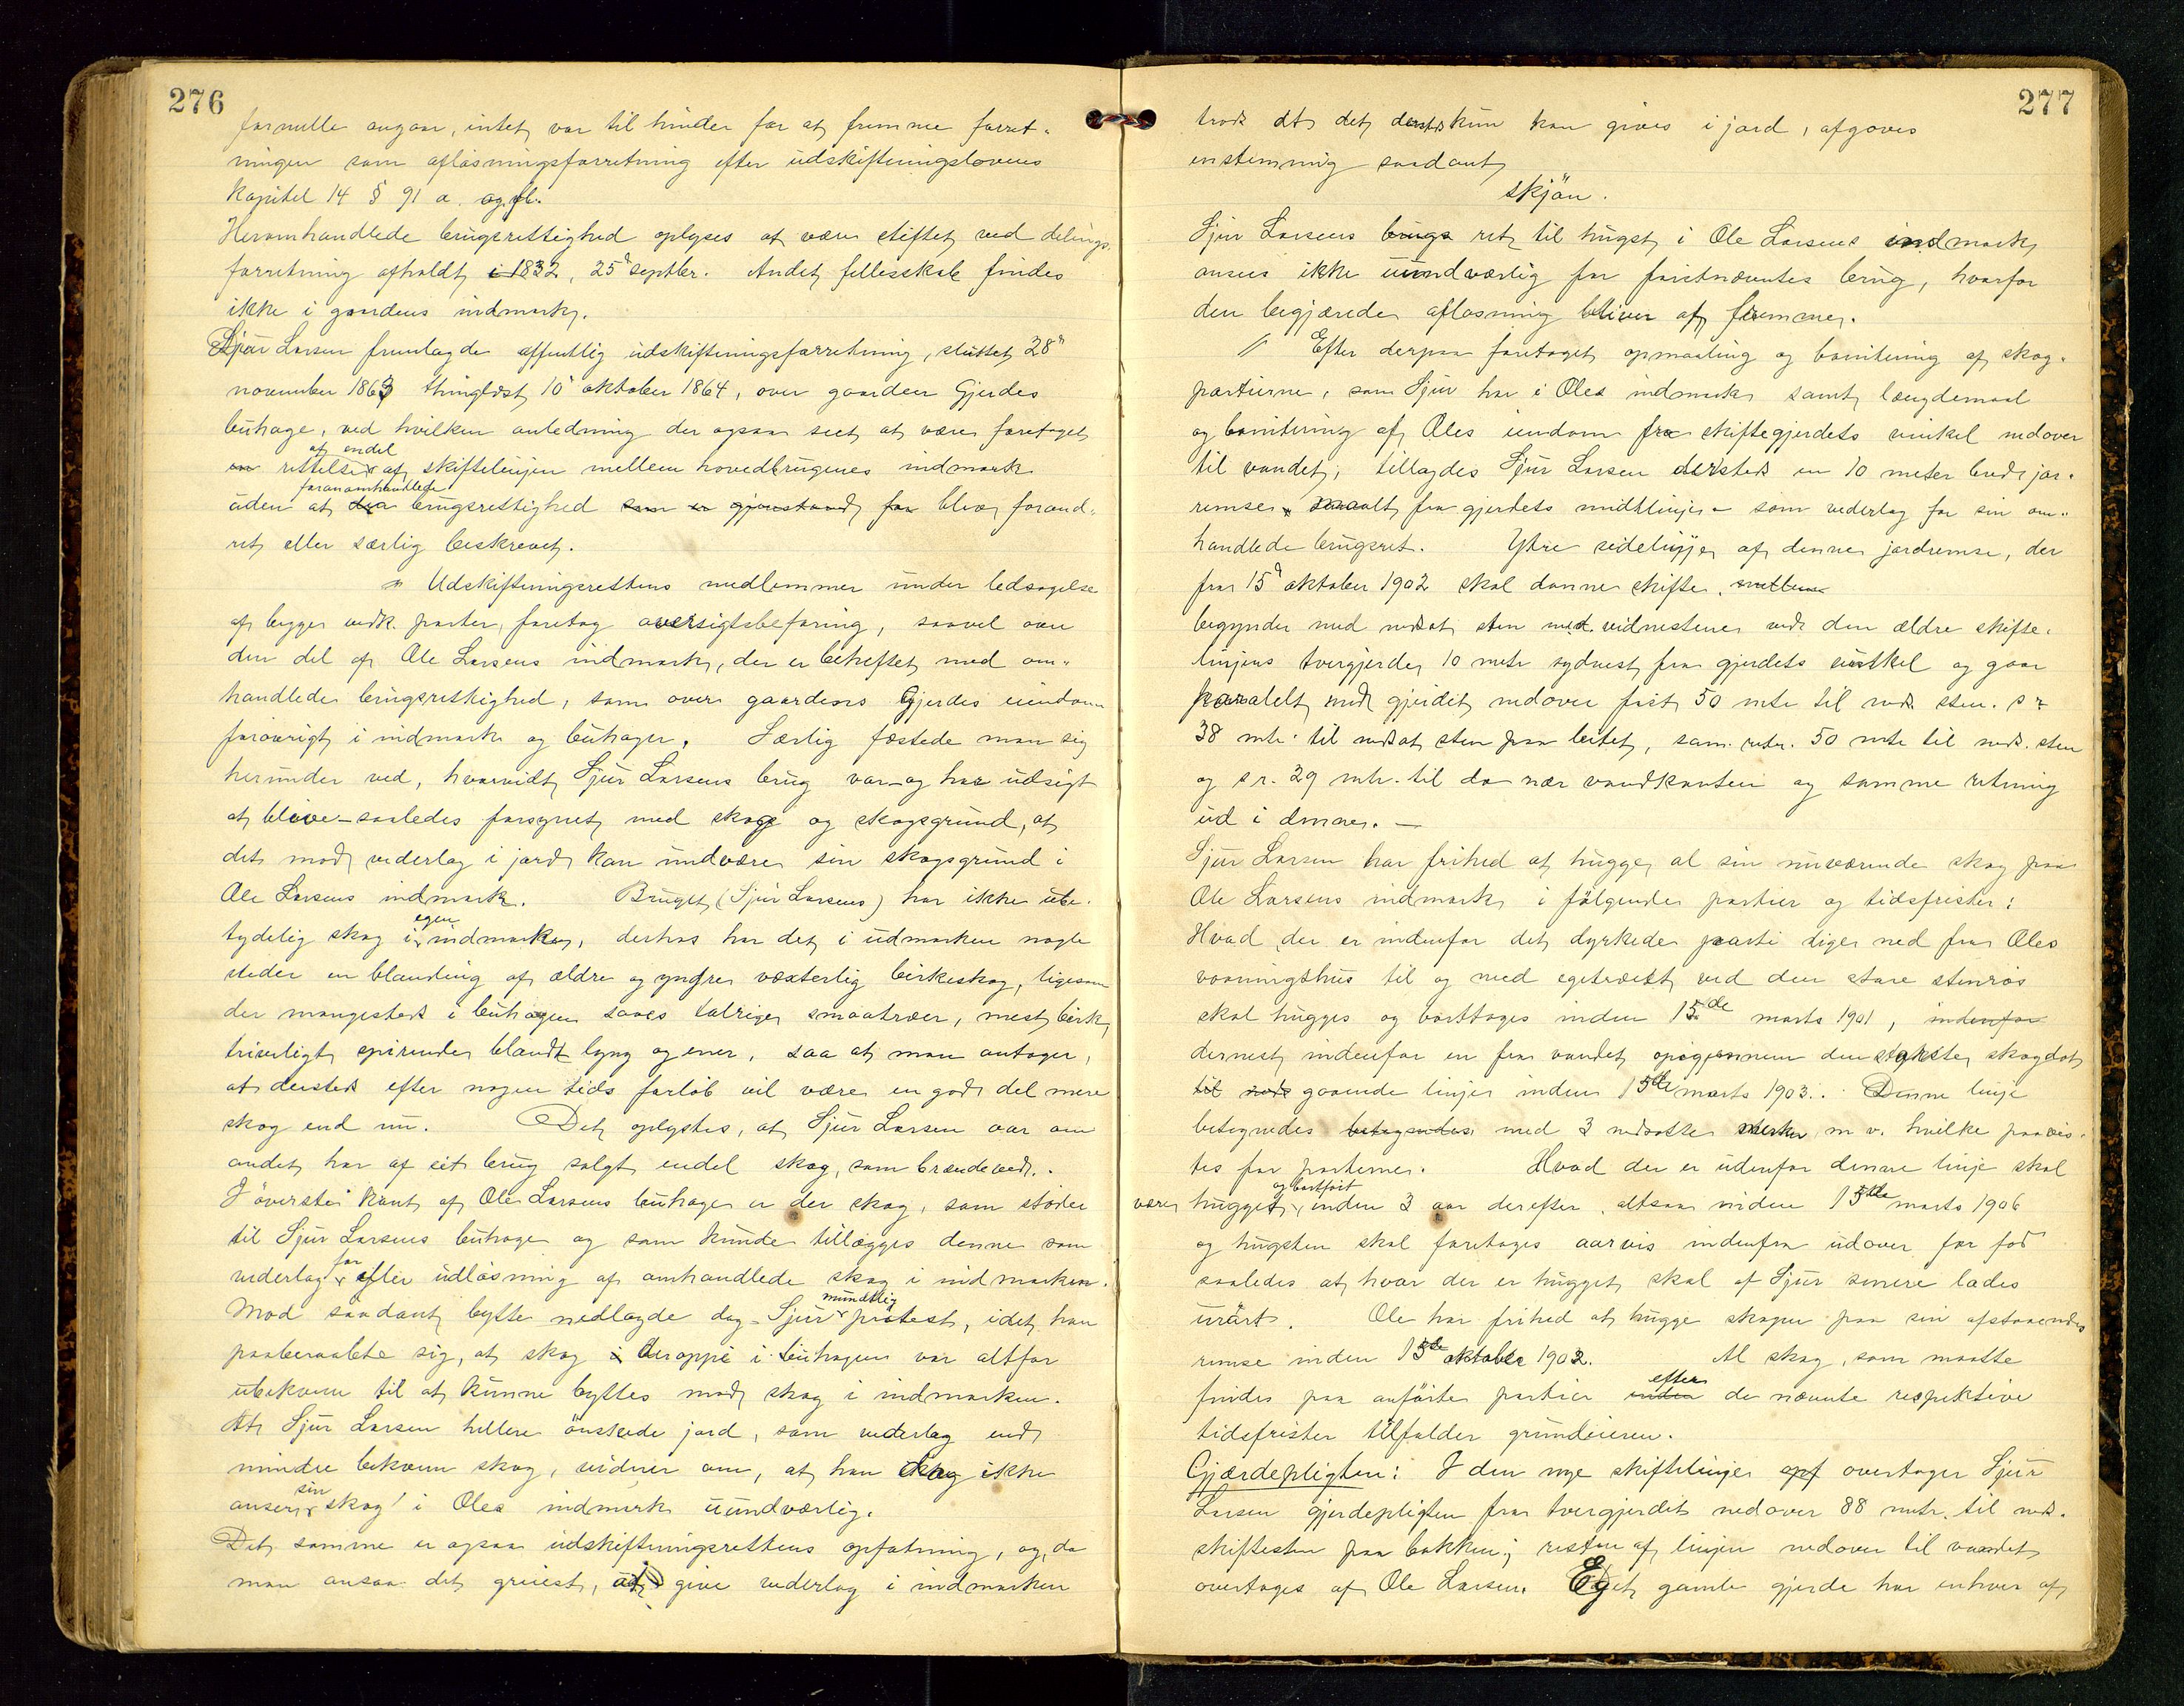 276
formelle angaar, intet var til hinder for at fremme forret-
ningen som aflösningsforretning efter udskiftningslovens
Kapitel 14 § 91 a. og fl.
Heromhandlede brugsrettighed oplyses at være stiftet ved delings-
forretning afholdt i 1832, 25d septbr. Andet fellesskab findes
ikke i gaardens indmark.
Sjur Larsen fremlagde offentlig udskiftningsforretning, sluttet 28d
november 1863 thinglæst 10d oktober 1864, over gaarden Gjerdes
buhage, ved hvilken anledning der ogsaa sees at være foretaget
en af endel rettelser af skiftelinjen mellem hovedbrugenes indmark
uden at den foranomhandlede brugsrettighed som er gjenstand for blev forand-
ret eller særlig beskrevet.
" Udskiftningsrettens medlemmer under ledsagelse
af begge vedk. parter, foretog oversigtsbefaring, saavel over
den del af Ole Larsens indmark, der er beheftet med om-
handlede brugsrettighed, som over gaardens Gjerdes eiendom
forövrigt i indmark og buhage. Særlig fæstede man sig
herunder ved, hvorvidt Sjur Larsens brug var og har udsigt
at blive saaledes forsynet med skog og skogsgrund, at
det mod vederlag i jord kan undvære sin skogsgrund i
Ole Larsens indmark. Bruget (Sjur Larsens) har ikke ube-
tydelig skog i egen indmarken, derhos har det i udmarken nogle
steder en blanding af ældre og yngre växterlig birkeskog, ligesom
der mangesteds i buhagen saaes talrige smaatrær, mest birk,
triveligt spirende blandt lyng og ener, saa at man antager,
at dersteds efter nogen tids forlöb vil være en god del mere
skog end nu. Det oplystes, at Sjur Larsen aar om
andet har af sit brug solgt endel skog, som brændeved.
I överste kant af Ole Larsens buhage er der skog, som stöder
til Sjur Larsens buhage og som kunde tillægges denne som
vederlag for efter udlösning af omhandlede skog i indmarken.
Mod saadant bytte nedlagde dog Sjur mundtlig protest, idet han
paaberaabte sig, at skog i deroppe i buhagen var altfor
ubekvem til at kunne byttes mod skog i indmarken.
At Sjur Larsen hellere önskede jord, som vederlag end
mindre bekvem skog, vidner om, at han skog ikke
anser sin skog i Oles indmark uundværlig.
Det samme er ogsaa udskiftningsrettens opfatning, og, da
man ansaa det greiest, at give vederlag i indmarken
277
trods at det dersteds kun kan gives i jord, afgaves
enstemmig saadant
skjön.
Sjur Larsens brugs ret til hugst i Ole Larsens indmark
ansees ikke uundværlig for förstnævntes brug, hvorfor
den begjærede aflösning bliver at fremme.
// Efter derpaa foretaget opmaaling og bonitering af skog-
partierne, som Sjur har i Oles indmark samt længdemaal
og bonitering af Oles eiendom fra skiftegjerdets vinkel nedover
til vandet, tillagdes Sjur Larsen dersteds en 10 meter bred jor-
remse, maalt fra gjerdets midtlinje som vederlag for sin om-
handlede brugsret. Ytre sidelinje af denne jordremse, der
fra 15d oktober 1902 skal danne skifte, mellem
begynder med nedsat sten med vidnestene ved den ældre skifte-
linjens tvergjerde, 10 mtr sydvest fra gjerdets vinkel og gaar
paralelt med gjerdet nedover först 50 mtr til neds. sten. s r
38 mtr. til nedsat sten paa leitet, sam. retn. 50 mtr til neds. sten
og s r. 29 mtr. til do nær vandkanten og samme retning
ud i denne. —
Sjur Larsen har frihed at hugge al sin nuværende skog paa
Ole Larsens indmark i fölgende partier og tidsfrister:
Hvad der er indenfor det dyrkede parti lige ned fra Oles
vaaningshus til og med egetræet ved den store stenrös
skal hugges og borttages inden 15de marts 1901, indenfor
dernest indenfor en fra vandet opigjennem den störste skogdot
til neds gaaende linje inden 15de marts 1903. Denne linje
betegnedes betegnedes med 3 nedsatte merker m v. hvilke paavis-
tes for parterne. Hvad der er udenfor denne linje skal
være hugget og bortfört, inden 3 aar derefter, altsaa inden 15de marts 1906
og hugsten skal foretages aarvis indenfra udover for fod
saaledes at hvor der er hugget skal af Sjur senere lades
urört. Ole har frihed at hugge skogen paa sin afstaaende
remse inden 15de oktober 1902. Al skog, som maatte
findes paa anförte partier inden efter de nævnte respektive
tidsfrister tilfalder grundeieren.
Gjærdepligten: I den nye skiftelinje opf overtager Sjur
Larsen gjerdepligten fra tvergjerdet nedover 88 mtr. til neds.
skiftesten paa bakken; resten af linjen nedover til vandet
overtages af Ole Larsen. Det gamle gjerde har enhver af